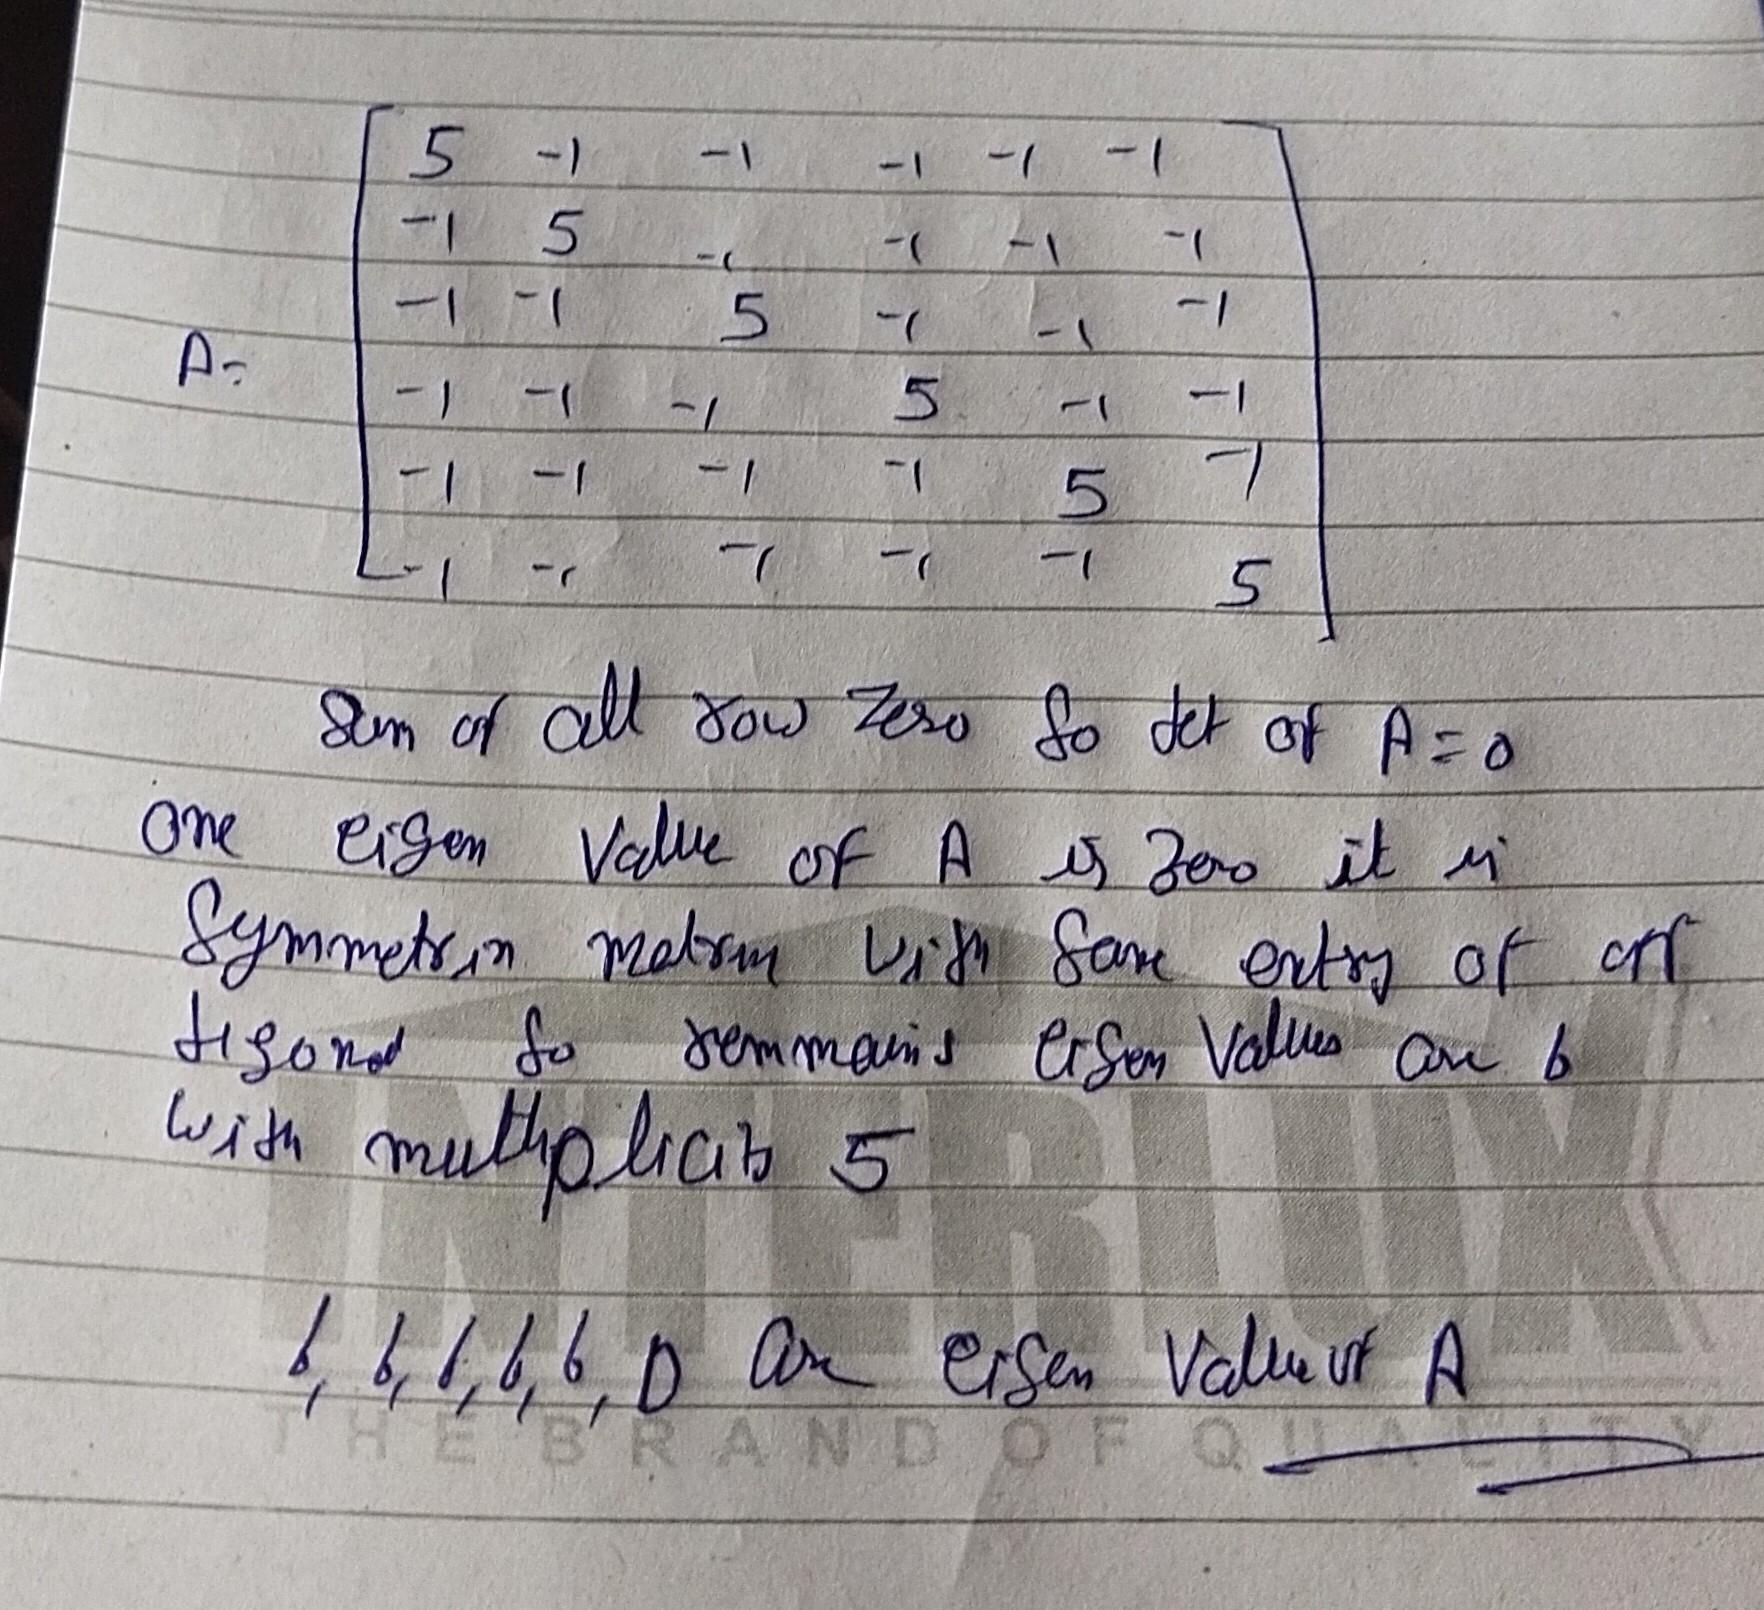 5 -1 -1 -1 -1 -1
-1 5 -1 -1 -1 -1
-1 -1 5 -1 -1 -1
A=
-1 -1 -1 5 -1 -1
-1 -1 -1 -1 5 -1
-1 -1 -1 -1 -1 5
Sum of all row zero so det of A=0
one eigen value of A is zero it is
symmetrix matrix with same entry of off
so remmains eigen values are 6
with multiplicity 5
6, 6, 6, 6, 6, 0 are eigen value of A
INTERLUX
THE BRAND OF QUALITY